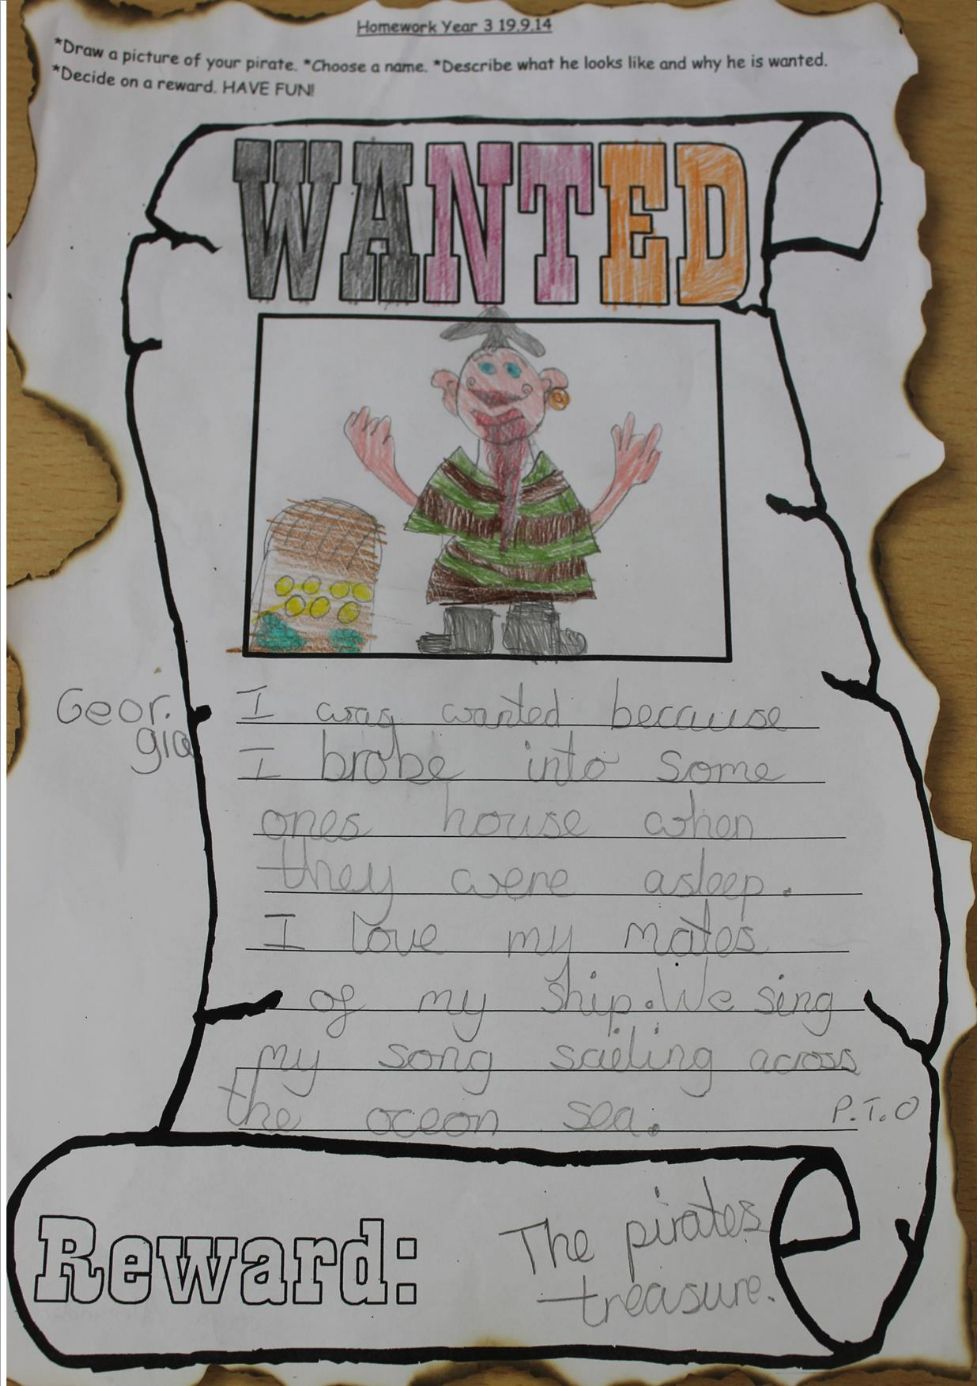 Homework Year 3 19.9.14
*Draw a picture of your pirate. *Choose a name. *Describe what he looks like and why he is wanted.
*Decide on a reward. HAVE FUN!
WANTED
Geor.
gia
I was wanted because
I brobe into some
ones house when
they were asleep.
I love my mates
of my ship. We sing
my song sailing across
the oceon sea.
P.T.O
Reward:
The pirates
treasure.